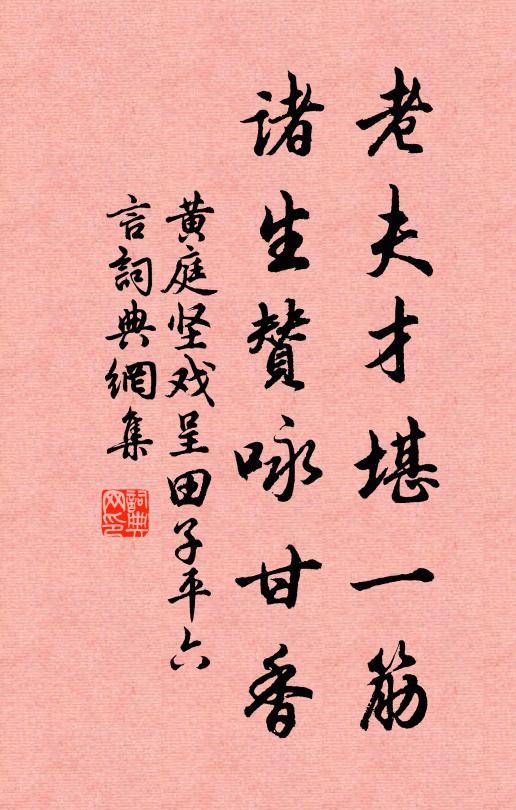 老夫才堪一筋
諸生贊咏甘香
黄庭坚戏呈田子平六
言詞典網集
詞典
网印